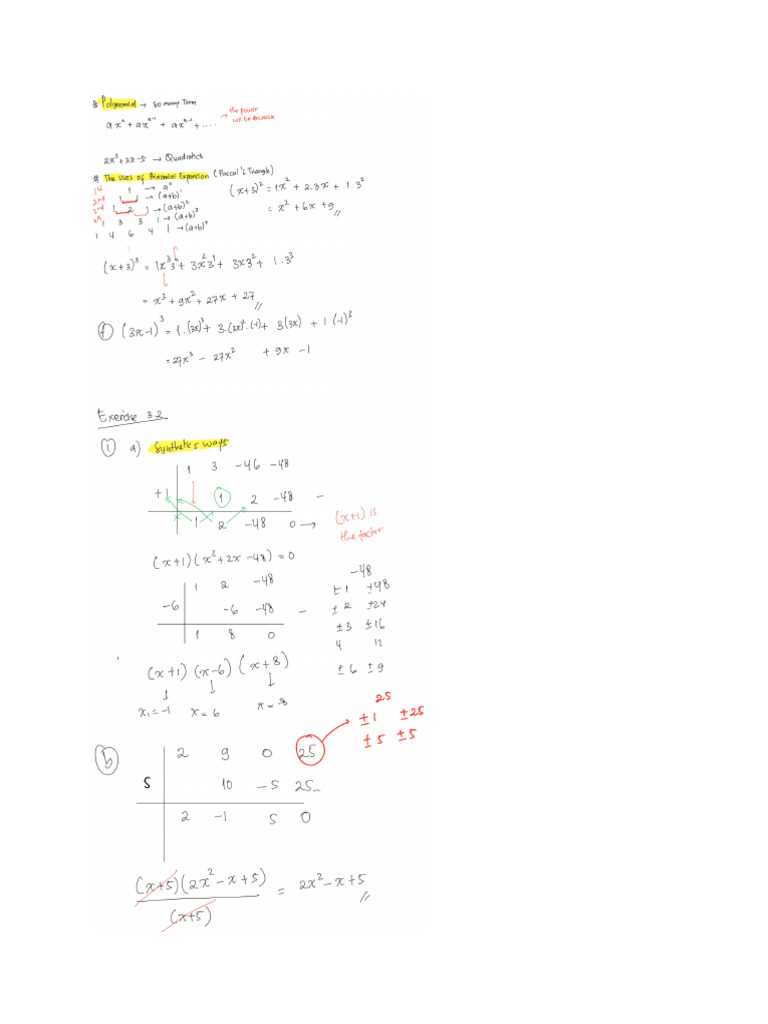 # Polynomial → so many Term
axⁿ + axⁿ⁻¹ + axⁿ⁻¹ + .... → the power will be decrease
2x² + 3x - 5 → Quadratics
# The Uses of Binomial Expansion (Pascal's Triangle)
1st 1 → a⁰
2nd 1 1 → (a+b)¹
1 2 1 → (a+b)²
1 3 3 1 → (a+b)³
1 4 6 4 1 → (a+b)⁴
(x+3)² = 1x² + 2.3x + 1.3²
= x² + 6x + 9 //
(x+3)³ = 1x³3⁰ + 3x²3¹ + 3x3² + 1.3³
= x³ + 9x² + 27x + 27 //
f (3x-1)³ = 1.(3x)³ + 3.(3x)².(-1) + 3(3x) + 1(-1)³
= 27x³ - 27x² + 9x - 1
Exercise 3.2
1 a) Synthetics ways
1 3 -46 -48
+1 1 2 -48 -
1 2 -48 0 → (x+1) is the factor
(x+1)(x²+2x-48) = 0
1 2 -48
-6 -6 -48 -
1 8 0
-48
±1 ±48
±2 ±24
±3 ±16
4 12
±6 ±9
(x+1) (x-6) (x+8)
x₁=-1 x=6 x=-8
25
±1 ±25
±5 ±5
b 2 9 0 25
5 10 -5 25 -
2 -1 5 0
(x+5)(2x²-x+5) = 2x²-x+5 //
(x+5)